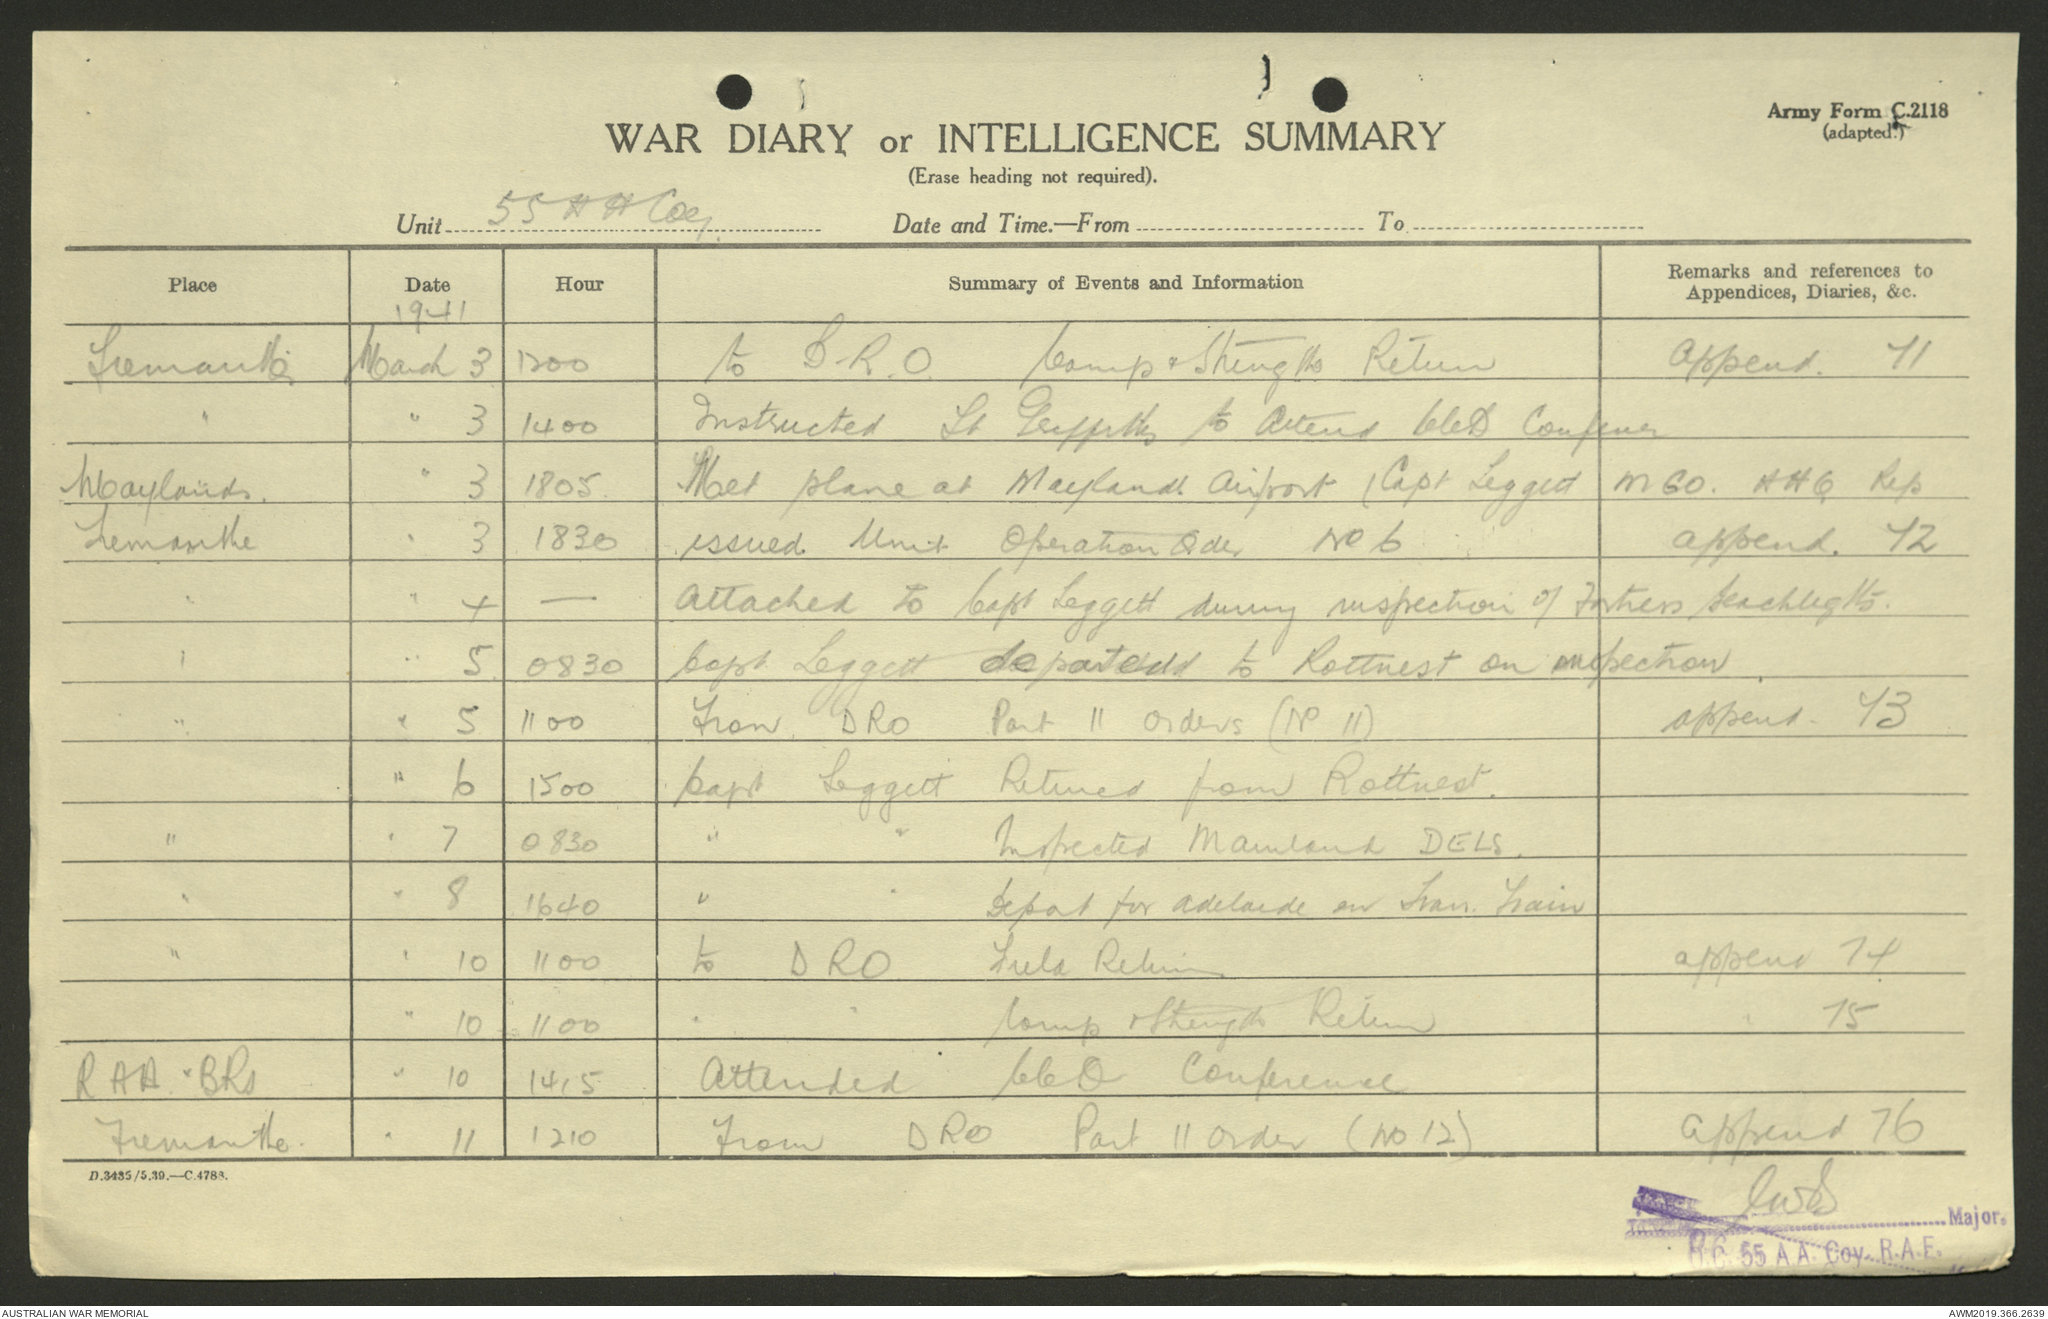 Army Form C.2118
(adapted.)
WAR DIARY or INTELLIGENCE SUMMARY
(Erase heading not required).
Unit 55 AA Coy. Date and Time.—From To
Place Date Hour Summary of Events and Information Remarks and references to Appendices, Diaries, &c.
1941
Fremantle March 3 1200 to D.R.O. Comp & Strengths Return append. 71
" " 3 1400 Instructed Lt Griffiths to Attend CCD
Maylands. " 3 1805 Met plane at Maylands Airport (Capt Leggett MGO. AHQ Rep
Fremantle " 3 1830 issued Unit Operation Order No 6 append. 72
" " 4 — Attached to Capt Leggett during inspection of Fortress Searchlights.
" " 5 0830 Capt Leggett departed to Rottnest on inspection.
" " 5 1100 From DRO Part 11 Orders (No 11) append. 73
" 6 1500 Capt Leggett Returned from Rottnest.
" " 7 0830 " " Inspected Mainland DELS.
" " 8 1640 " " Depart for Adelaide on Tran. Train
" " 10 1100 to DRO Field Return append 74
" 10 1100 " " Comp & Strengths Return " 75
RAA. BKs " 10 1415 Attended CCD Conference
Fremantle. " 11 1210 From DRO Part 11 Order (No 12) append 76
D.3435/5.39.—C.4788.
Major.
O.C. 55 A.A. Coy. R.A.E.
AUSTRALIAN WAR MEMORIAL
AWM2019.366.2639